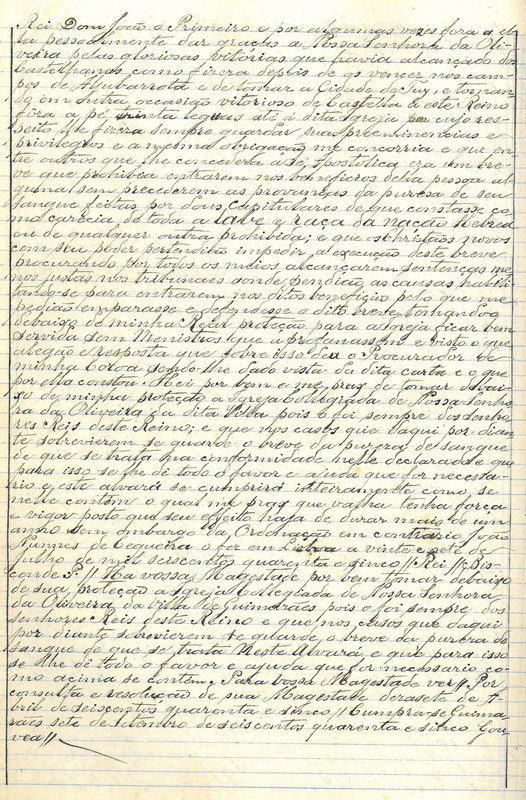 Rei Dom João o Primeiro e por algumas vezes fora a el-
la pessoalmente dar graças a Nossa Senhora da Oli-
veira pelas gloriosas vitorias que havia alcançado dos
Castelhanos como fizera depois de os vencer nos cam-
pos de Aljubarrota e de tomar a Cidade de Tuy, e tornan-
do em outra occasião vitorioso de Castella a este Reino
fora a pé trinta leguas até á dita Igreja por cujo res-
peito lhe fizera sempre guardar suas preeminencias e
privilegios e a mesma obrigação me concorria e que en-
tre outros que lhe concedera a Sé Apostolica era um bre-
ve que prohibia entrarem nos beneficios della pessoa al-
guma sem precederem as provanças da puresa de seu
sangue feitas por dous Capitulares de que constasse co-
mo carecia de toda a raça da nação Hebrea
ou de qualquer outra prohibida; e que os Christãos novos
com seu poder pertendião impedir a execução deste breve
procurando por todos os meios alcançarem sentenças me-
nos justas nos tribunaes aonde pendião as causas habili-
tando-se para entrarem nos ditos beneficios pelo que me
pedião emparasse e defendesse o dito breve tomando-o
debaixo de minha Real proteção para a Igreja ficar bem
servida sem Ministros que a profanassem e visto o que
alegão e resposta que sobre isso deo o Procurador de
minha Coroa sendo-lhe dado vista da dita carta e o que
por ella constou. Hei por bem e me praz de tomar debai-
xo de minha proteção a Igreja Collegiada de Nossa Senho-
ra da Oliveira da dita Villa pois o foi sempre dos Senho-
res Reis deste Reino; e que nos casos que daqui por dian-
te sobrevierem se guarde o breve da pureza de sangue
de que se trata na conformidade nelle declarada e que
para isso se lhe dê todo o favor e ajuda que for necessa-
rio e este alvará se cumprirá inteiramente como se
nelle contem o qual me praz que valha tenha força
e vigor posto que seu efeito haja de durar mais de um
anno sem embargo da Ordenação em contrario João
Nunnes de Cequeira o fez em Lisboa a vinte e sete de
Julho de mil seiscentos quarenta e sinco // Rei // Bis-
conde P. // Ha vossa Magestade por bem tomar debaixo
de sua proteção a Igreja Collegiada de Nossa Senhora
da Oliveira da villa de Guimarães pois o foi sempre dos
Senhores Reis deste Reino e que nos casos que daqui
por diante sobrevierem se guarde o breve da pureza do
sangue de que se trata Neste Alvará e que para isso
se lhe dê todo o favor e ajuda que for necessario co-
mo acima se contem, Para vossa Magestade ver // Por
consulta e resolução de sua Magestade desasete de A-
bril de seiscentos quarenta e sinco // Cumpra-se Guima-
rães sete de Setembro de seiscentos quarenta e sinco Gou-
vea //